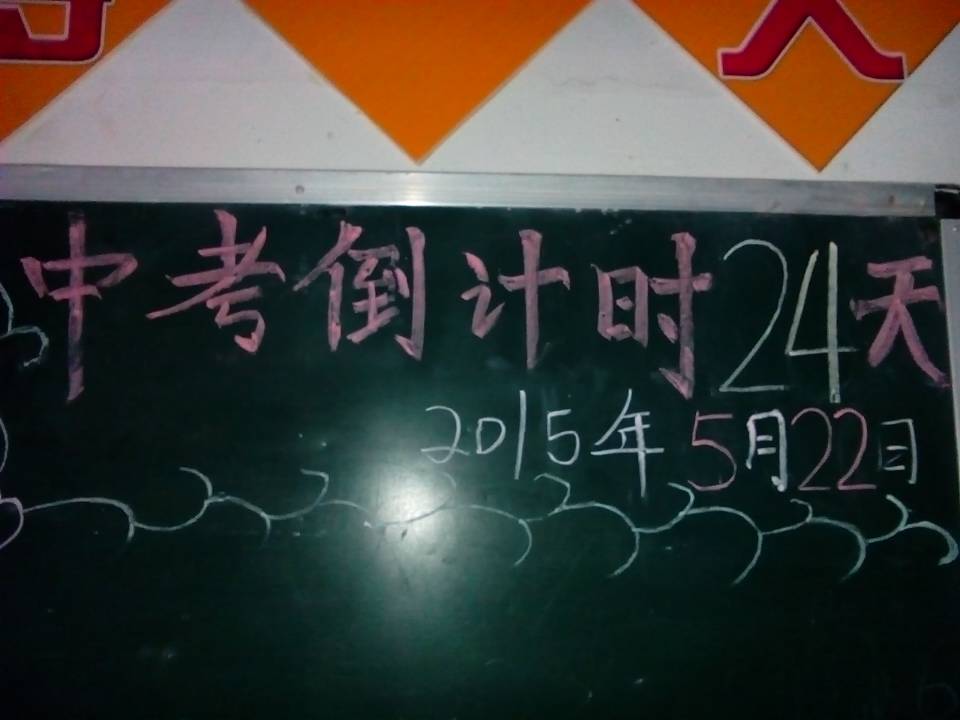 中考倒计时24天
2015年5月22日